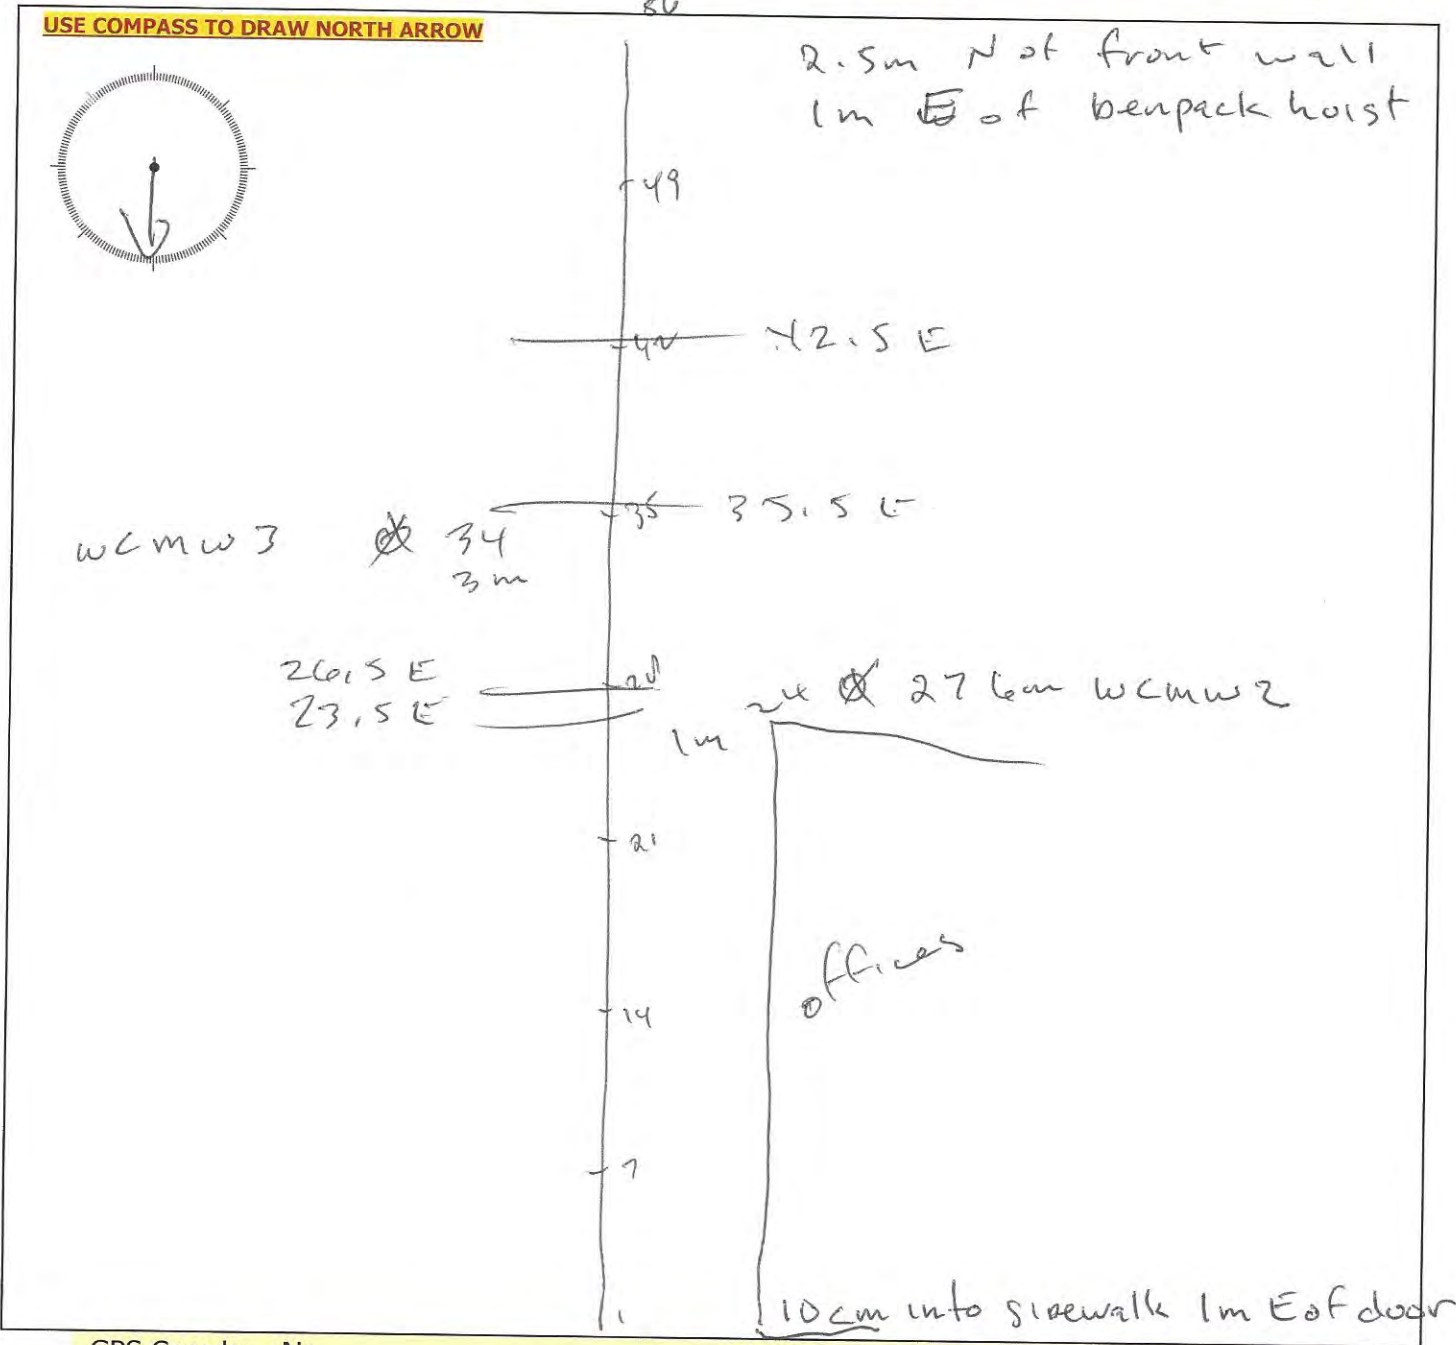 USE COMPASS TO DRAW NORTH ARROW
2.5m N of front wall
1m E of benpack hoist
49
42
42.5 E
35
35.5 E
wcmw3
34
3m
26.5 E
28
23.5 E
27 6m wcmw2
1m
21
offices
14
7
1
10cm into sidewalk 1m E of door